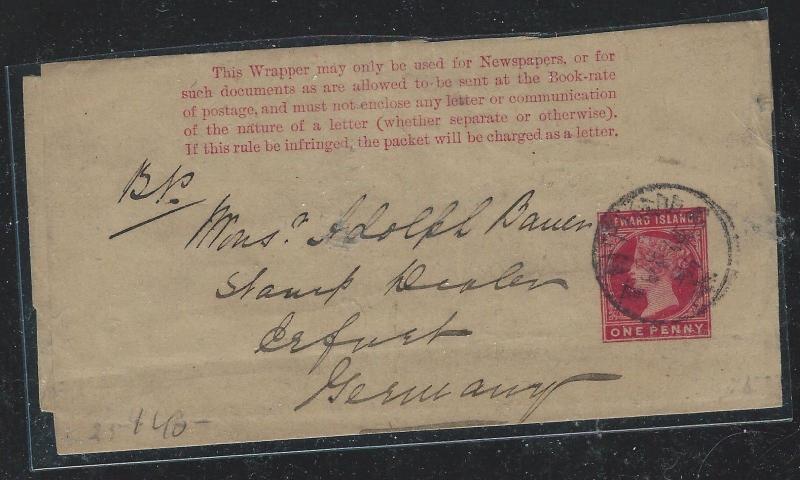 This Wrapper may only be used for Newspapers, or for
such documents as are allowed to be sent at the Book-rate
of postage, and must not enclose any letter or communication
of the nature of a letter (whether separate or otherwise).
If this rule be infringed, the packet will be charged as a letter.
B.P.
Mons.r Adolph Bauer
Stamp Dealer
Erfurt
Germany
EWARD ISLANDS
ONE PENNY